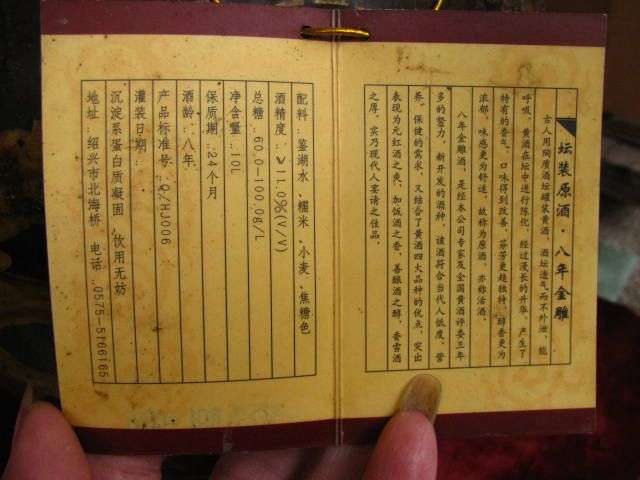 坛装原酒·八年金雕
古人用陶质酒坛罐装黄酒，酒坛透气而不外泄，能
呼吸，黄酒在坛中进行陈化，经过漫长的升华，产生了
特有的香气，口味得到改善，芬芳更趋独特，醇香更为
浓郁，味感更为舒适，故称为原酒，亦称活酒。
八年金雕酒，是经本公司专家及全国黄酒评委三年
多的努力，新开发的酒种，该酒符合当代人低度、营
养、保健的需求，又结合了黄酒四大品种的优点，突出
表现为元红酒之爽，加饭酒之香，善酿酒之醇，香雪酒
之厚，实乃现代人宴请之佳品。
配料：鉴湖水、糯米、小麦、焦糖色
酒精度：≥11.0%(V/V)
总糖：60.0-100.0g/L
净含量：10L
保质期：24个月
酒龄：八年
产品标准号：Q/HJ006
灌装日期：
沉淀系蛋白质凝固，饮用无妨
地址：绍兴市北海桥 电话：0575-5166165